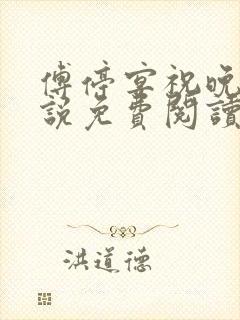 傅停宴祝晚
説免費閱讀
洪道德